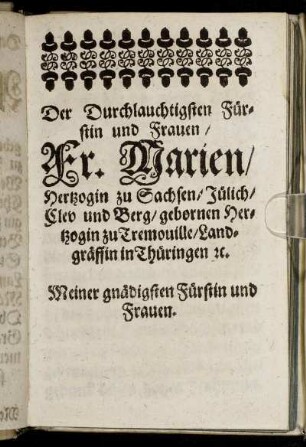 Der Durchlauchtigsten Für-
stin und Frauen/
Fr. Marien/
Hertzogin zu Sachsen/ Jülich/
Clev und Berg/ gebornen Her-
tzogin zu Tremouille/ Land-
gräffin in Thüringen ꝛc.
Meiner gnädigsten Fürstin und
Frauen.